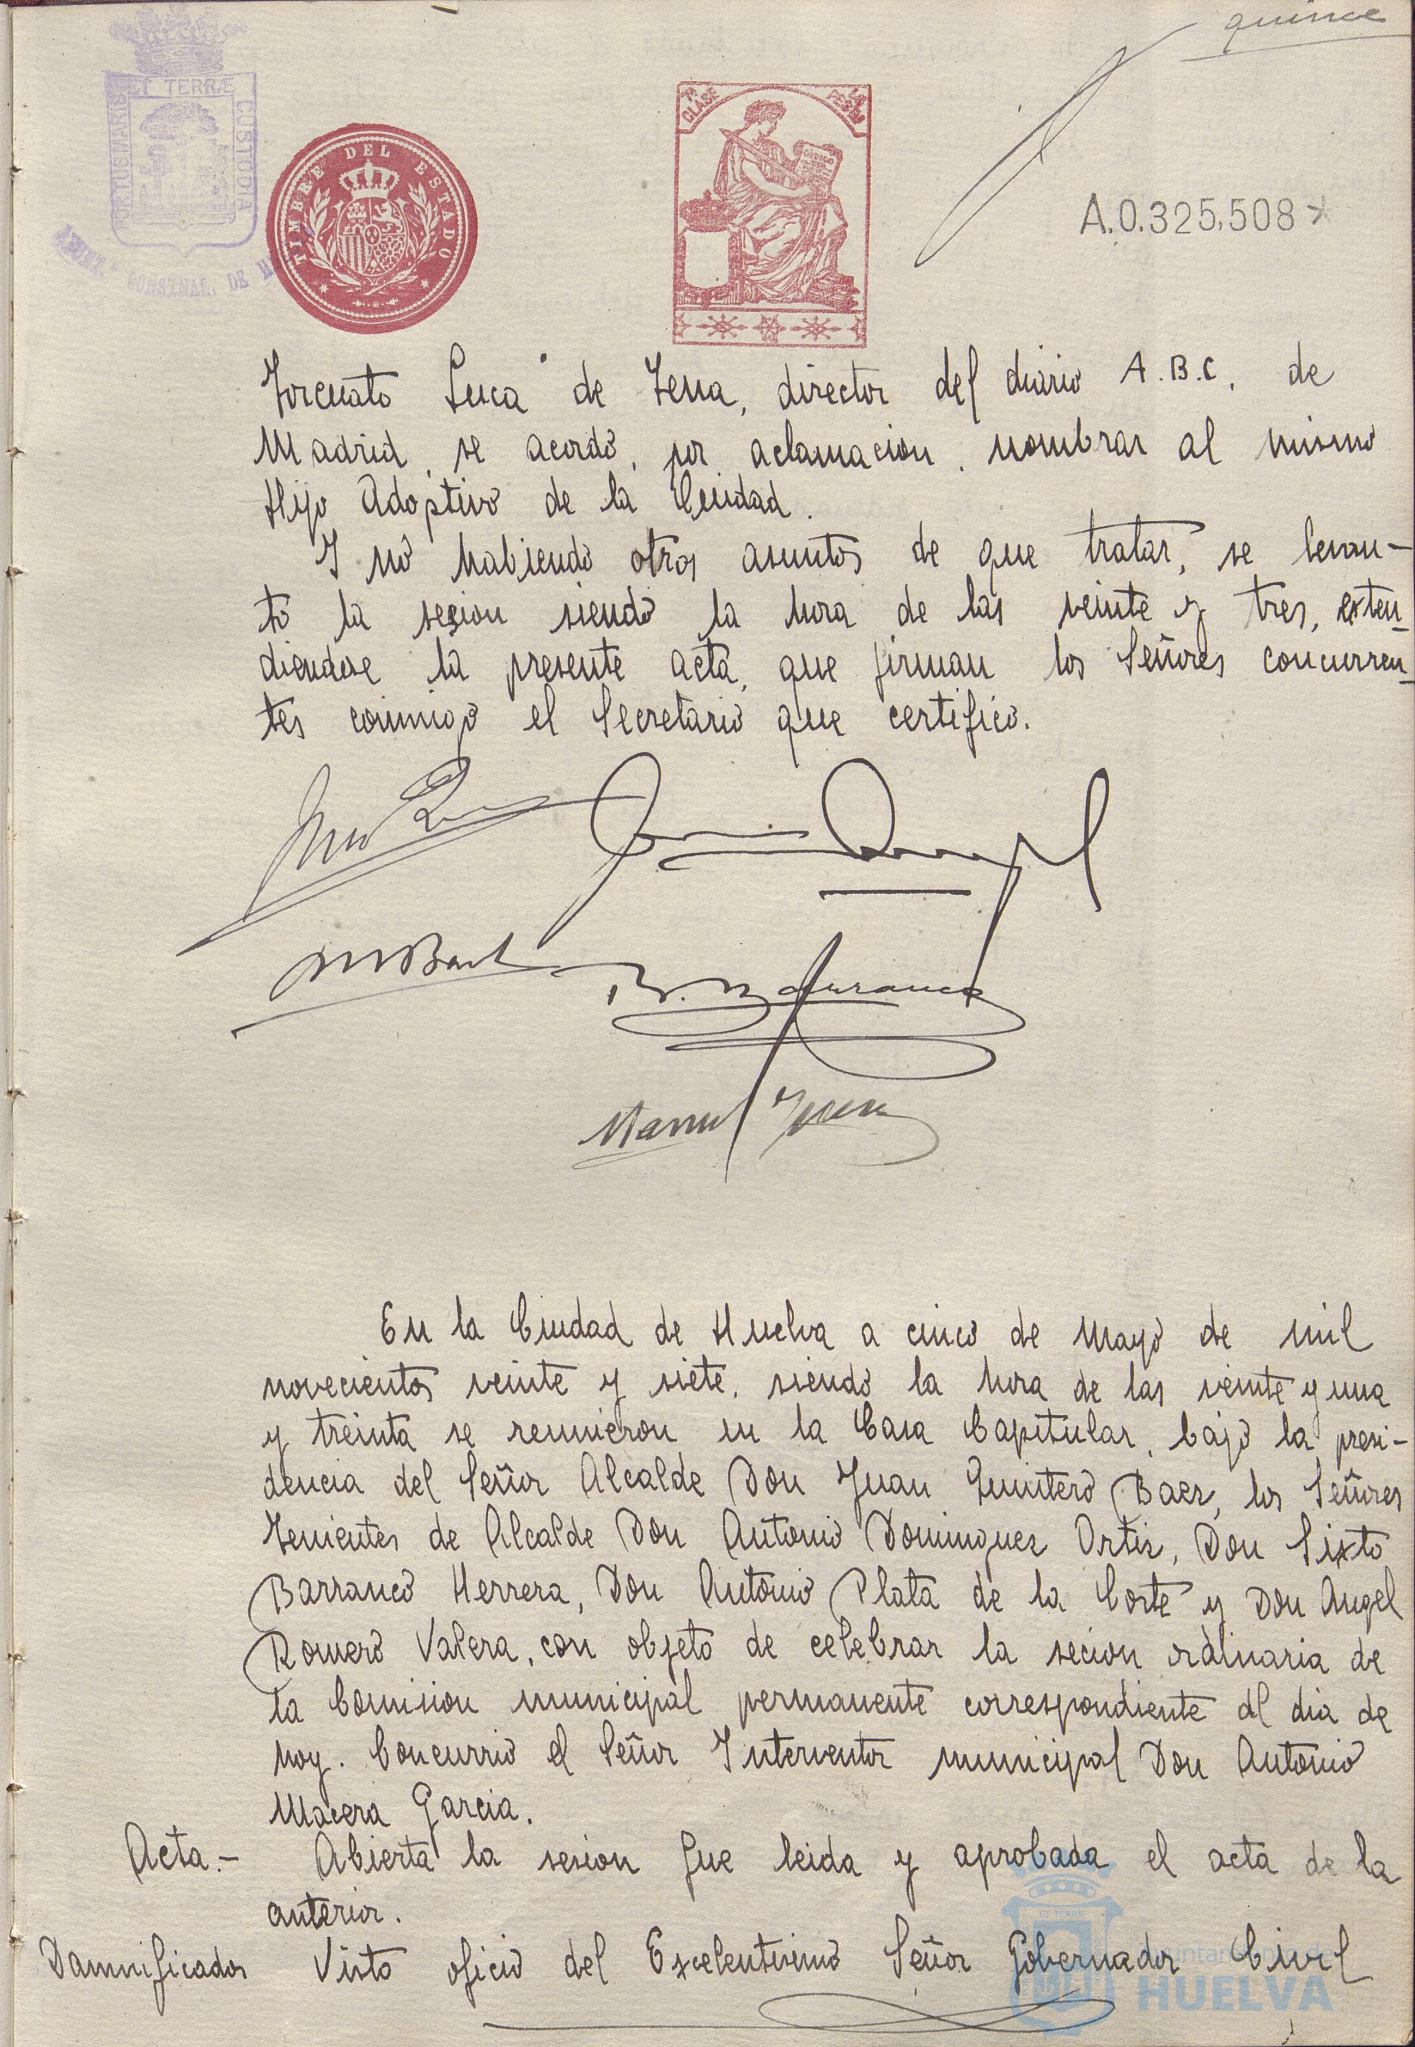 quince
ET TERRÆ
PORTUS MARIS
CUSTODIA
CONSTNAL. DE H
TIMBRE DEL ESTADO
7ª CLASE
PESETA
CODIGO
A.0.325,508*
Torcuato Luca de Tena, director del diario A.B.C. de
Madrid, se acordó, por aclamacion, nombrar al mismo
Hijo Adoptivo de la Ciudad.
Y no habiendo otros asuntos de que tratar, se levan-
tó la sesion siendo la hora de las veinte y tres, exten-
diendose la presente acta, que firman los Señores concurren-
tes conmigo el Secretario que certifico.
Manuel
En la Ciudad de Huelva a cinco de Mayo de mil
novecientos veinte y siete, siendo la hora de las veinte y una
y treinta se reunieron en la Casa Capitular, bajo la presi-
dencia del Señor Alcalde Don Juan Quintero Baez, los Señores
Tenientes de Alcalde Don Antonio Dominguez Ortiz, Don Sixto
Barranco Herrera, Don Antonio Plata de la Corte y Don Angel
Romero Valera, con objeto de celebrar la secion ordinaria de
la Comision municipal permanente correspondiente al dia de
hoy. Concurrió el Señor Interventor municipal Don Antonio
Macera Garcia.
Acta.- Abierta la sesion fue leida y aprobada el acta de la
anterior.
Damnificados Visto oficio del Excelentisimo Señor Gobernador Civil
Ayuntamiento de
HUELVA